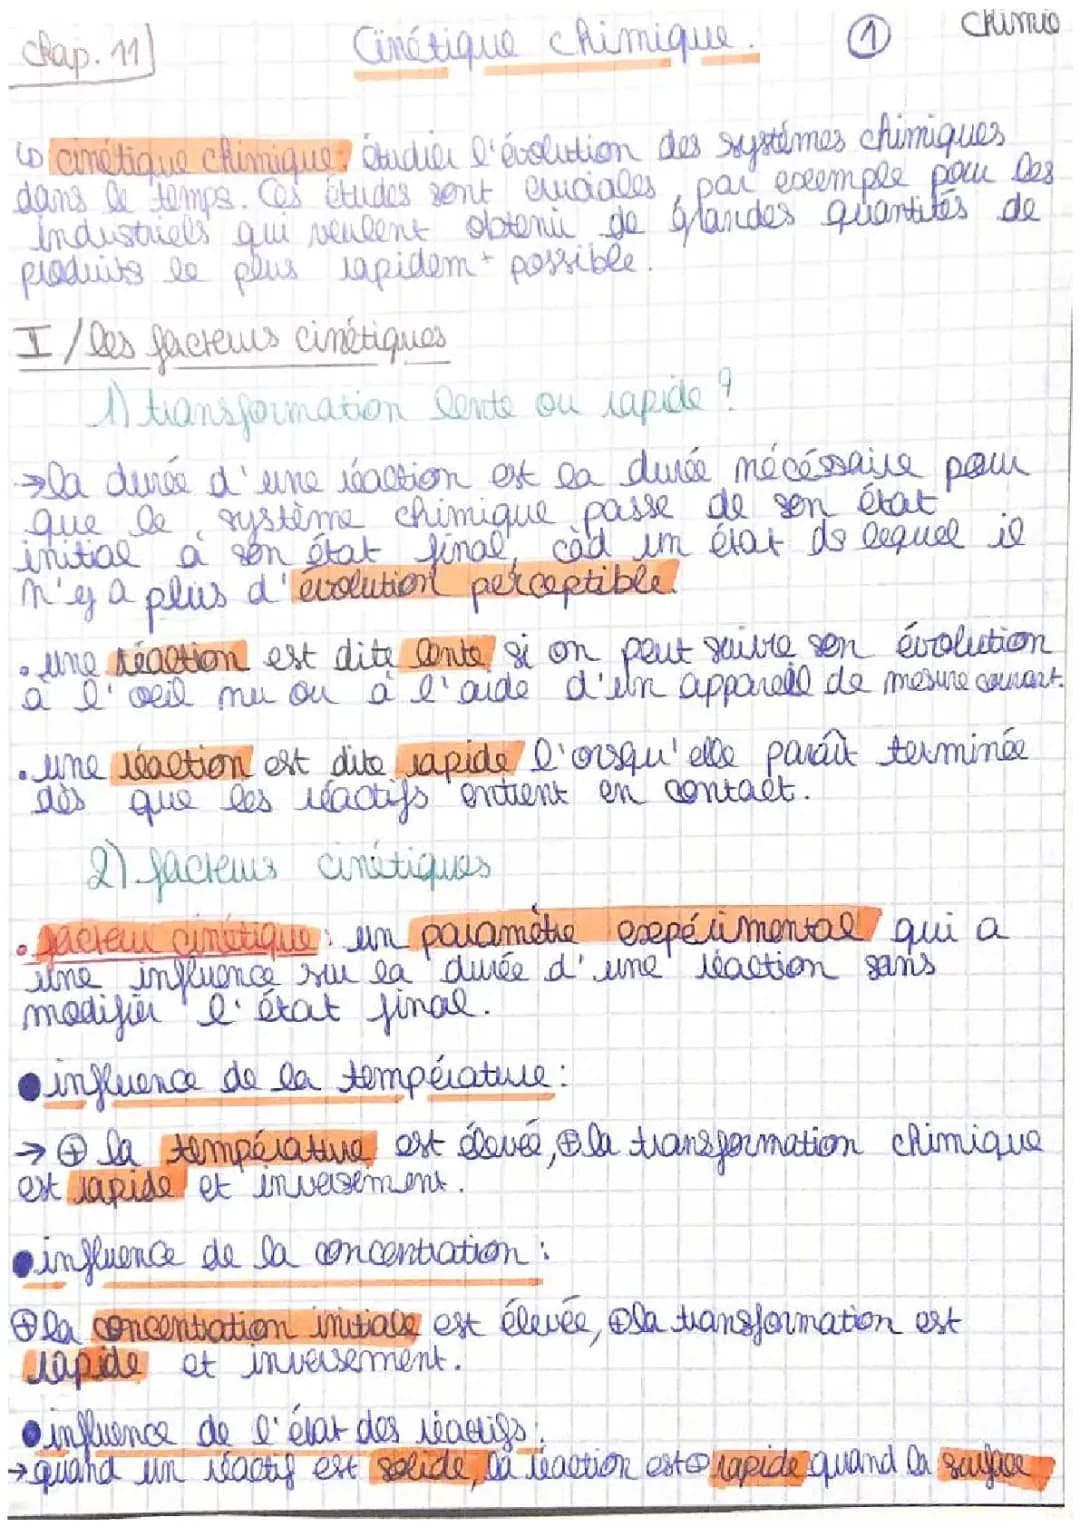 Chap. 11) Cinétique chimique. ① Chimie
↳ cinétique chimique: étudier l'évolution des systèmes chimiques
dans le temps. Ces études sont cruciales, par exemple pour les
industriels qui veulent obtenir de grandes quantités de
produits le plus rapidem^t possible.
I / les facteurs cinétiques
1) transformation lente ou rapide ?
→ la durée d'une réaction est la durée nécéssaire pour
que le système chimique passe de son état
initial à son état final, càd un état ds lequel il
n'y a plus d'évolution perceptible.
• une réaction est dite lente si on peut suivre son évolution
à l'oeil nu ou à l'aide d'un appareil de mesure courant.
• une réaction est dite rapide l'orsqu'elle paraît terminée
dès que les réactifs entrent en contact.
2) facteurs cinétiques
• facteur cinétique: un paramètre expérimental qui a
une influence sur la durée d'une réaction sans
modifier l'état final.
● influence de la température :
→ ⊕ la température est élevée, ⊕ la transformation chimique
est rapide et inversement.
● influence de la concentration :
⊕ la concentration initiale est élevée, ⊕ la transformation est
rapide et inversement.
● influence de l'état des réactifs :
→ quand un réactif est solide, la réaction est ⊕ rapide quand la surface